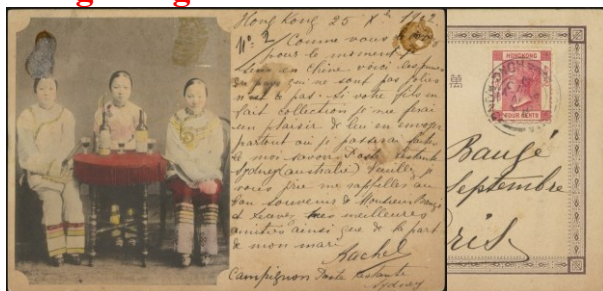 Hong Kong 25 Xbre 1902
No 2 Comme vous
pour le moment
en Chine voici les
du pays qui ne sont pas
n'est ce pas. Si votre fils en
fait collection je me ferai
un plaisir de lui en envoyer
partout où je passerai faites
le moi savoir Poste restante
Sydney (australie) Veuillez je
vous prie me rappeler au
bon souvenir de Monsieur Baugé
et meilleures
amitiés ainsi que de la part
de mon mari
Rachel
Campignon Poste restante
Sydney
HONG KONG
HONGKONG
FOUR CENTS
Baugé
Septembre
Paris